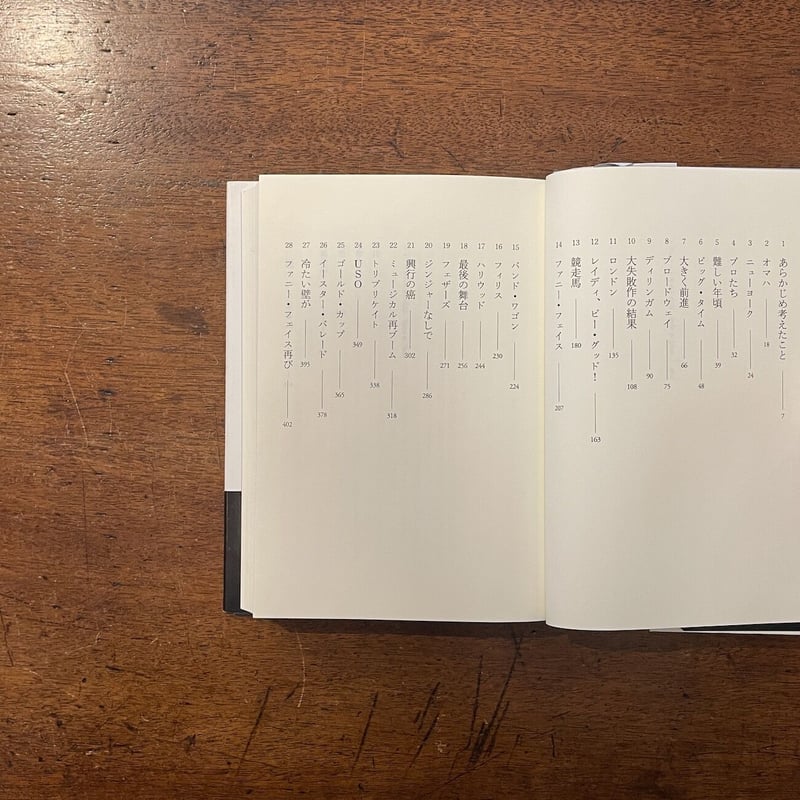 1 あらかじめ考えたこと 7
2 オマハ 18
3 ニューヨーク 24
4 プロたち 32
5 難しい年頃 39
6 ビッグ・タイム 48
7 大きく前進 66
8 ブロードウェイ 75
9 ディリンガム 90
10 大失敗作の結果 108
11 ロンドン 135
12 レイディ、ビー・グッド! 163
13 競走馬 180
14 ファニー・フェイス 207
15 バンド・ワゴン 224
16 フィリス 230
17 ハリウッド 244
18 最後の舞台 256
19 フェザーズ 271
20 ジンジャーなしで 286
21 興行の癌 302
22 ミュージカル再ブーム 318
23 トリプリケイト 338
24 USO 349
25 ゴールド・カップ 365
26 イースター・パレード 378
27 冷たい壁が 395
28 ファニー・フェイス再び 402